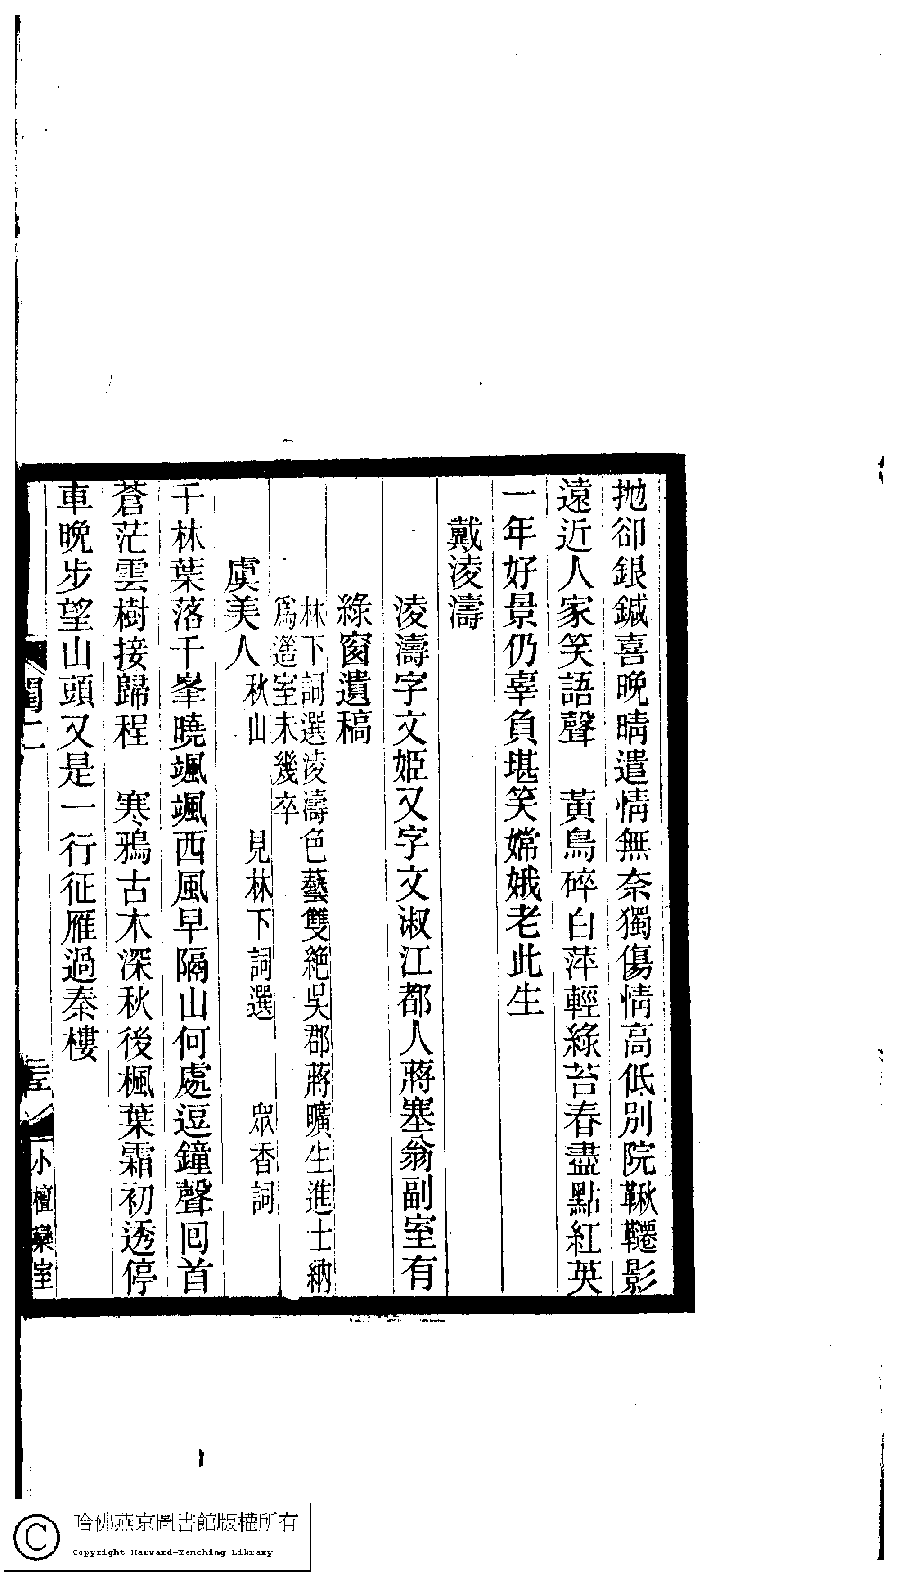 拋卻銀鍼喜晚晴遣情無奈獨傷情高低別院鞦韆影
遠近人家笑語聲　黃鳥碎白萍輕綠苔春盡點紅英
一年好景仍辜負堪笑嫦娥老此生
戴淩濤
淩濤字文姬又字文淑江都人蔣塞翁副室有
綠窗遺稿
林下詞選淩濤色藝雙絶吳郡蔣曠生進士納
爲簉室未幾卒
虞美人 秋山　見林下詞選　眾香詞
千林葉落千峯曉颯颯西風早隔山何處逗鐘聲回首
蒼茫雲樹接歸程　寒鴉古木深秋後楓葉霜初透停
車晚步望山頭又是一行征雁過秦樓
閨二
小檀欒室
哈佛燕京圖書館版權所有
Copyright Harvard-Yenching Library